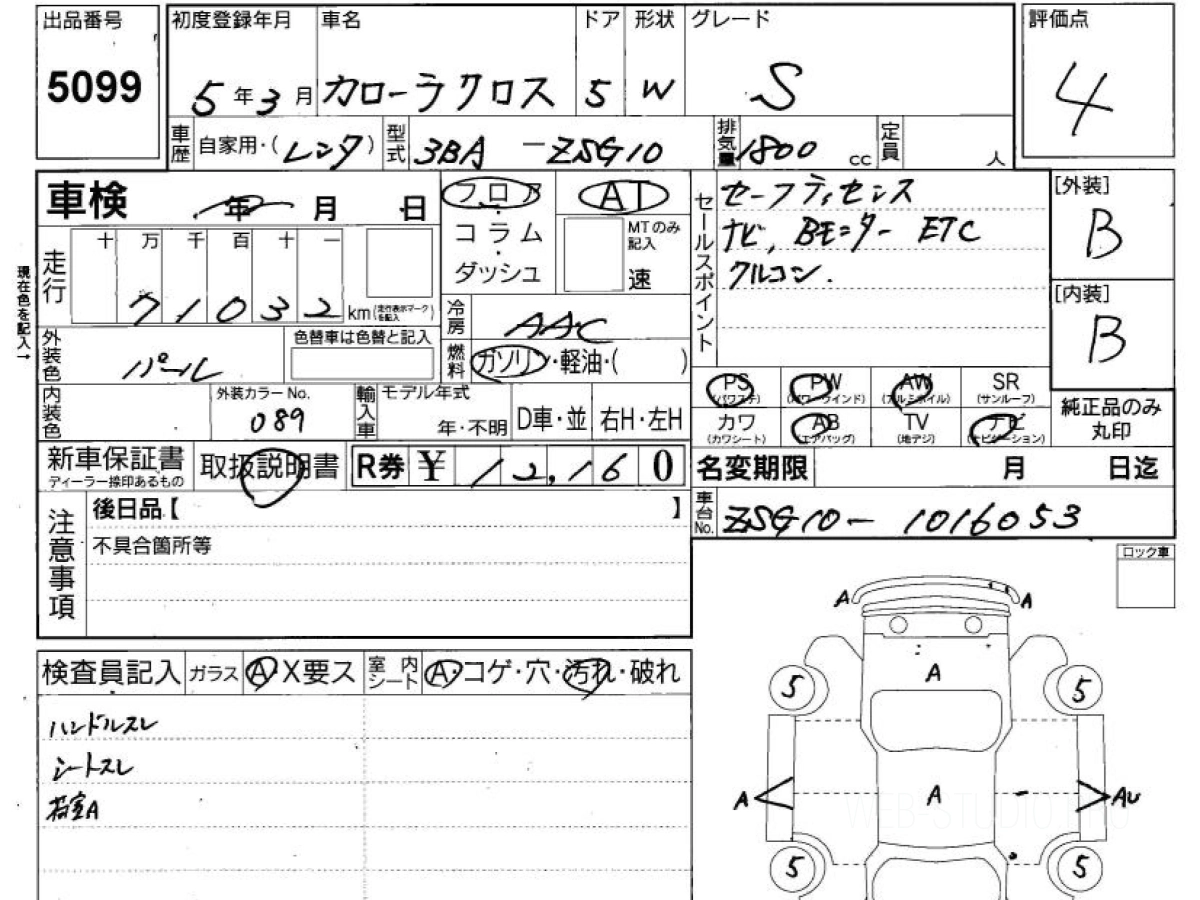 出品番号 初度登録年月 車名 ドア 形状 グレード 評価点
5099 5年3月 カローラクロス 5 W S 4
車歴 自家用・(レンタ) 型式 3BA-ZSG10 排気量 1800cc 定員 人
車検 年 月 日 フロア AT セールスポイント セーフティセンス [外装]
コラム MTのみ記入 ナビ, Bモニター ETC B
走行 十 万 千 百 十 一 ダッシュ 速 クルコン.
現在色を記入→ 71032 km(走行表示マークを記入) 冷房 AAC [内装]
外装色 パール 色替車は色替と記入 燃料 ガソリン・軽油・( ) B
PS PW AW SR
(パワステ) (パワーウインド) (アルミホイル) (サンルーフ)
内装色 外装カラーNo. 089 輸入車 モデル年式 年・不明 D車・並 右H・左H 純正品のみ丸印
カワ AB TV ナビ
(カワシート) (エアバッグ) (地デジ) (ナビゲーション)
新車保証書 取扱説明書 R券 ¥ 12,160 名変期限 月 日迄
ディーラー捺印あるもの
注意事項 後日品【 】 車台No. ZSG10-1016053
不具合箇所等
ロック車
A A
検査員記入 ガラス A・X要ス 室内シート A・コゲ・穴・汚れ・破れ
A
5 5
ハンドルスレ
シートスレ
荷室A
A A AU
WEB-STUDIO.PRO
5 5